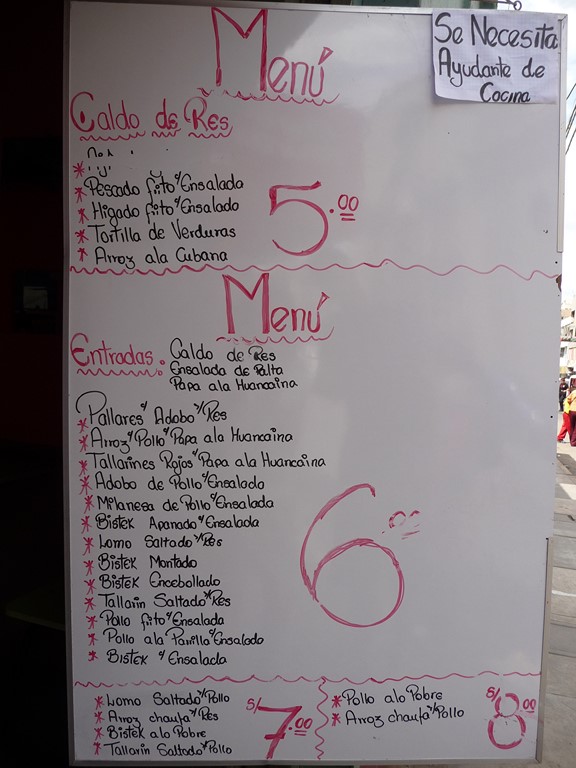 Se Necesita
Ayudante de
Cocina
Menú
Caldo de Res
* Pescado frito c/ Ensalada
* Higado frito c/ Ensalado
* Tortilla de Verduras
* Arroz ala Cubana
5.00
Menú
Entradas. Caldo de Res
Ensalada de Palta
Papa ala Huancaina
* Pallares c/ Adobo d/ Res
* Arroz c/ Pollo c/ Papa ala Huancaina
* Tallarines Rojos c/ Papa ala Huancaina
* Adobo de Pollo c/ Ensalado
* Milanesa de Pollo c/ Ensalada
* Bistek Apanado c/ Ensalada
* Lomo Saltado d/ Res
* Bistek Montado
* Bistek Encebollado
* Tallarin Saltado d/ Res
* Pollo frito c/ Ensalada
* Pollo ala Parrilla c/ Ensalado
* Bistek c/ Ensalada
6.00
* Lomo Saltado d/ Pollo
* Arroz chaufa d/ Res
* Bistek alo Pobre
* Tallarin Saltado d/ Pollo
S/ 7.00
* Pollo alo Pobre
* Arroz chaufa d/ Pollo
S/ 8.00